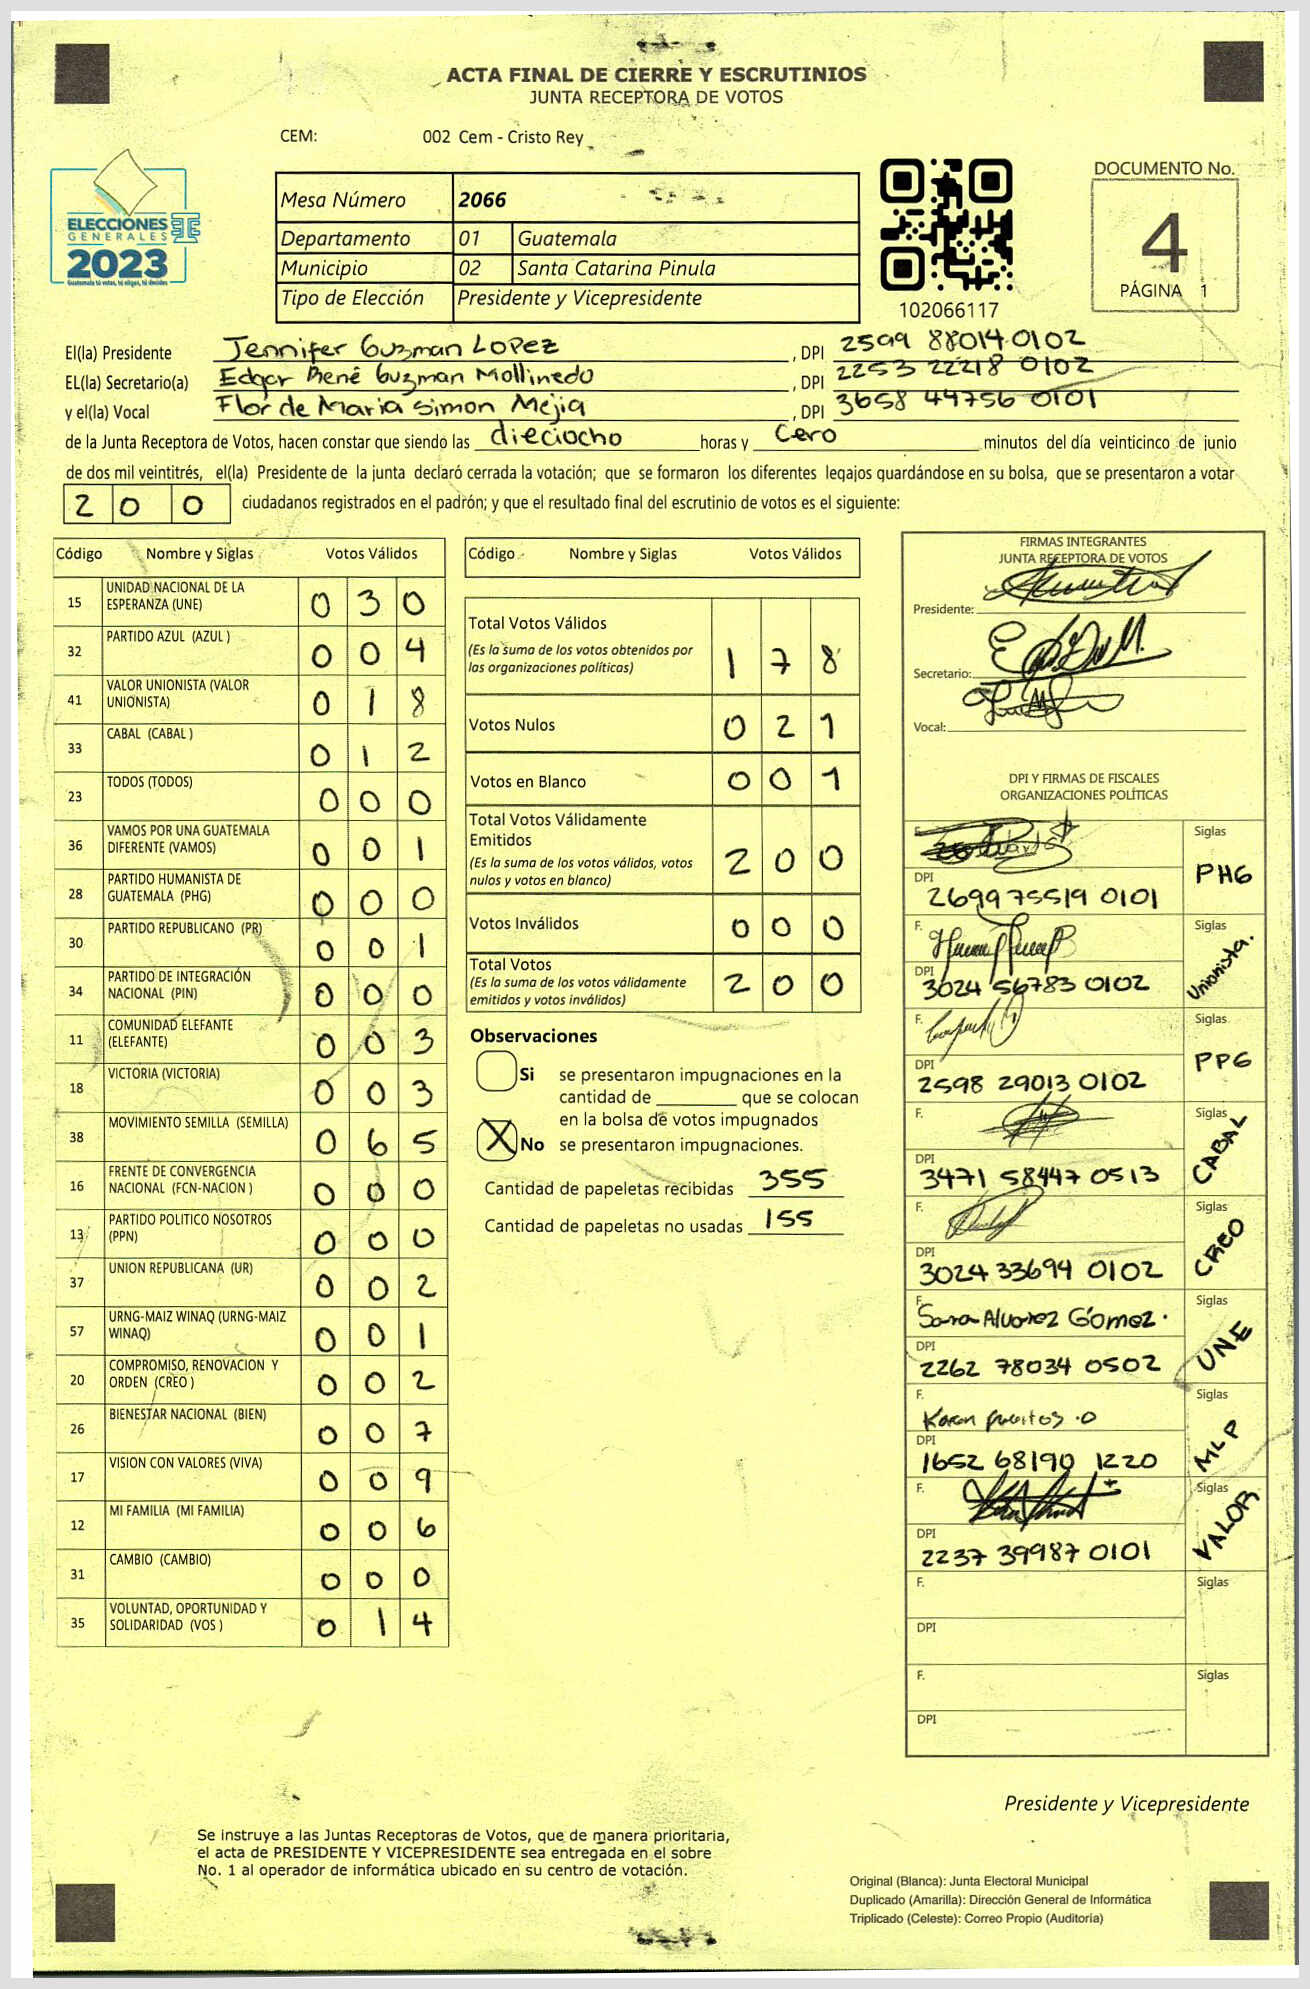 ACTA FINAL DE CIERRE Y ESCRUTINIOS
JUNTA RECEPTORA DE VOTOS
CEM: 002 Cem - Cristo Rey
ELECCIONES
GENERALES
2023
Guatemala tú votas, tú eliges, tú decides
Mesa Número 2066
Departamento 01 Guatemala
Municipio 02 Santa Catarina Pinula
Tipo de Elección Presidente y Vicepresidente
102066117
DOCUMENTO No.
4
PÁGINA 1
El(la) Presidente Jennifer Guzman Lopez, DPI 2599 88014 0102
EL(la) Secretario(a) Edgar René Guzman Mollinedo, DPI 2253 22218 0102
y el(la) Vocal Flor de Maria Simon Mejia, DPI 3658 44756 0101
de la Junta Receptora de Votos, hacen constar que siendo las dieciocho horas y Cero minutos del día veinticinco de junio
de dos mil veintitrés, el(la) Presidente de la junta declaró cerrada la votación; que se formaron los diferentes legajos guardándose en su bolsa, que se presentaron a votar
2 0 0 ciudadanos registrados en el padrón; y que el resultado final del escrutinio de votos es el siguiente:
Código Nombre y Siglas Votos Válidos
15 UNIDAD NACIONAL DE LA ESPERANZA (UNE) 0 3 0
32 PARTIDO AZUL (AZUL ) 0 0 4
41 VALOR UNIONISTA (VALOR UNIONISTA) 0 1 8
33 CABAL (CABAL ) 0 1 2
23 TODOS (TODOS) 0 0 0
36 VAMOS POR UNA GUATEMALA DIFERENTE (VAMOS) 0 0 1
28 PARTIDO HUMANISTA DE GUATEMALA (PHG) 0 0 0
30 PARTIDO REPUBLICANO (PR) 0 0 1
34 PARTIDO DE INTEGRACIÓN NACIONAL (PIN) 0 0 0
11 COMUNIDAD ELEFANTE (ELEFANTE) 0 0 3
18 VICTORIA (VICTORIA) 0 0 3
38 MOVIMIENTO SEMILLA (SEMILLA) 0 6 5
16 FRENTE DE CONVERGENCIA NACIONAL (FCN-NACION ) 0 0 0
13 PARTIDO POLITICO NOSOTROS (PPN) 0 0 0
37 UNION REPUBLICANA (UR) 0 0 2
57 URNG-MAIZ WINAQ (URNG-MAIZ WINAQ) 0 0 1
20 COMPROMISO, RENOVACION Y ORDEN (CREO ) 0 0 2
26 BIENESTAR NACIONAL (BIEN) 0 0 7
17 VISION CON VALORES (VIVA) 0 0 9
12 MI FAMILIA (MI FAMILIA) 0 0 6
31 CAMBIO (CAMBIO) 0 0 0
35 VOLUNTAD, OPORTUNIDAD Y SOLIDARIDAD (VOS ) 0 1 4
Código Nombre y Siglas Votos Válidos
Total Votos Válidos 1 7 8
(Es la suma de los votos obtenidos por
las organizaciones políticas)
Votos Nulos 0 2 1
Votos en Blanco 0 0 1
Total Votos Válidamente
Emitidos 2 0 0
(Es la suma de los votos válidos, votos
nulos y votos en blanco)
Votos Inválidos 0 0 0
Total Votos 2 0 0
(Es la suma de los votos válidamente
emitidos y votos inválidos)
Observaciones
Si se presentaron impugnaciones en la
cantidad de ________ que se colocan
en la bolsa de votos impugnados
X No se presentaron impugnaciones.
Cantidad de papeletas recibidas 355
Cantidad de papeletas no usadas 155
FIRMAS INTEGRANTES
JUNTA RECEPTORA DE VOTOS
Presidente:
Secretario:
Vocal:
DPI Y FIRMAS DE FISCALES
ORGANIZACIONES POLÍTICAS
F. Siglas PHG
DPI 2699 75519 0101
F. Siglas Unionista.
DPI 3024 56783 0102
F. Siglas PPG
DPI 2598 29013 0102
F. Siglas CABAL
DPI 3471 58447 0513
F. Siglas CREO
DPI 3024 33694 0102
F. Sara Alvarez Gómez. Siglas UNE
DPI 2262 78034 0502
F. Karen Siglas MLP
DPI 1652 68190 1220
F. Siglas VALOR
DPI 2237 39987 0101
F. Siglas
DPI
F. Siglas
DPI
Presidente y Vicepresidente
Se instruye a las Juntas Receptoras de Votos, que de manera prioritaria,
el acta de PRESIDENTE Y VICEPRESIDENTE sea entregada en el sobre
No. 1 al operador de informática ubicado en su centro de votación.
Original (Blanca): Junta Electoral Municipal
Duplicado (Amarilla): Dirección General de Informática
Triplicado (Celeste): Correo Propio (Auditoría)